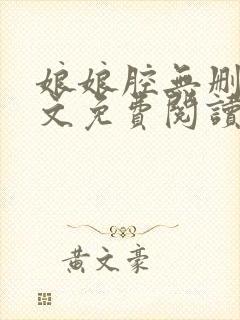 娘娘腔無刪
文免費閱讀
黃文豪